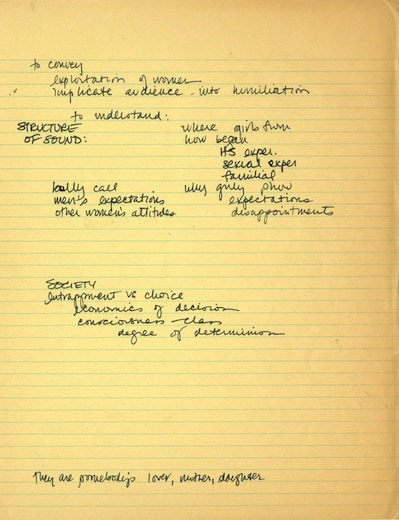 to convey
exploitation of women
implicate audience - into humiliation
to understand:
STRUCTURE OF SOUND:
where girls from
how began
HS exper.
sexual exper
familial
bally call
men's expectations
other women's attitudes
why girly show
expectations
disappointments
SOCIETY
entrapment vs choice
economics of decision
consciousness - class
degree of determinism
They are somebody's lover, mother, daughter